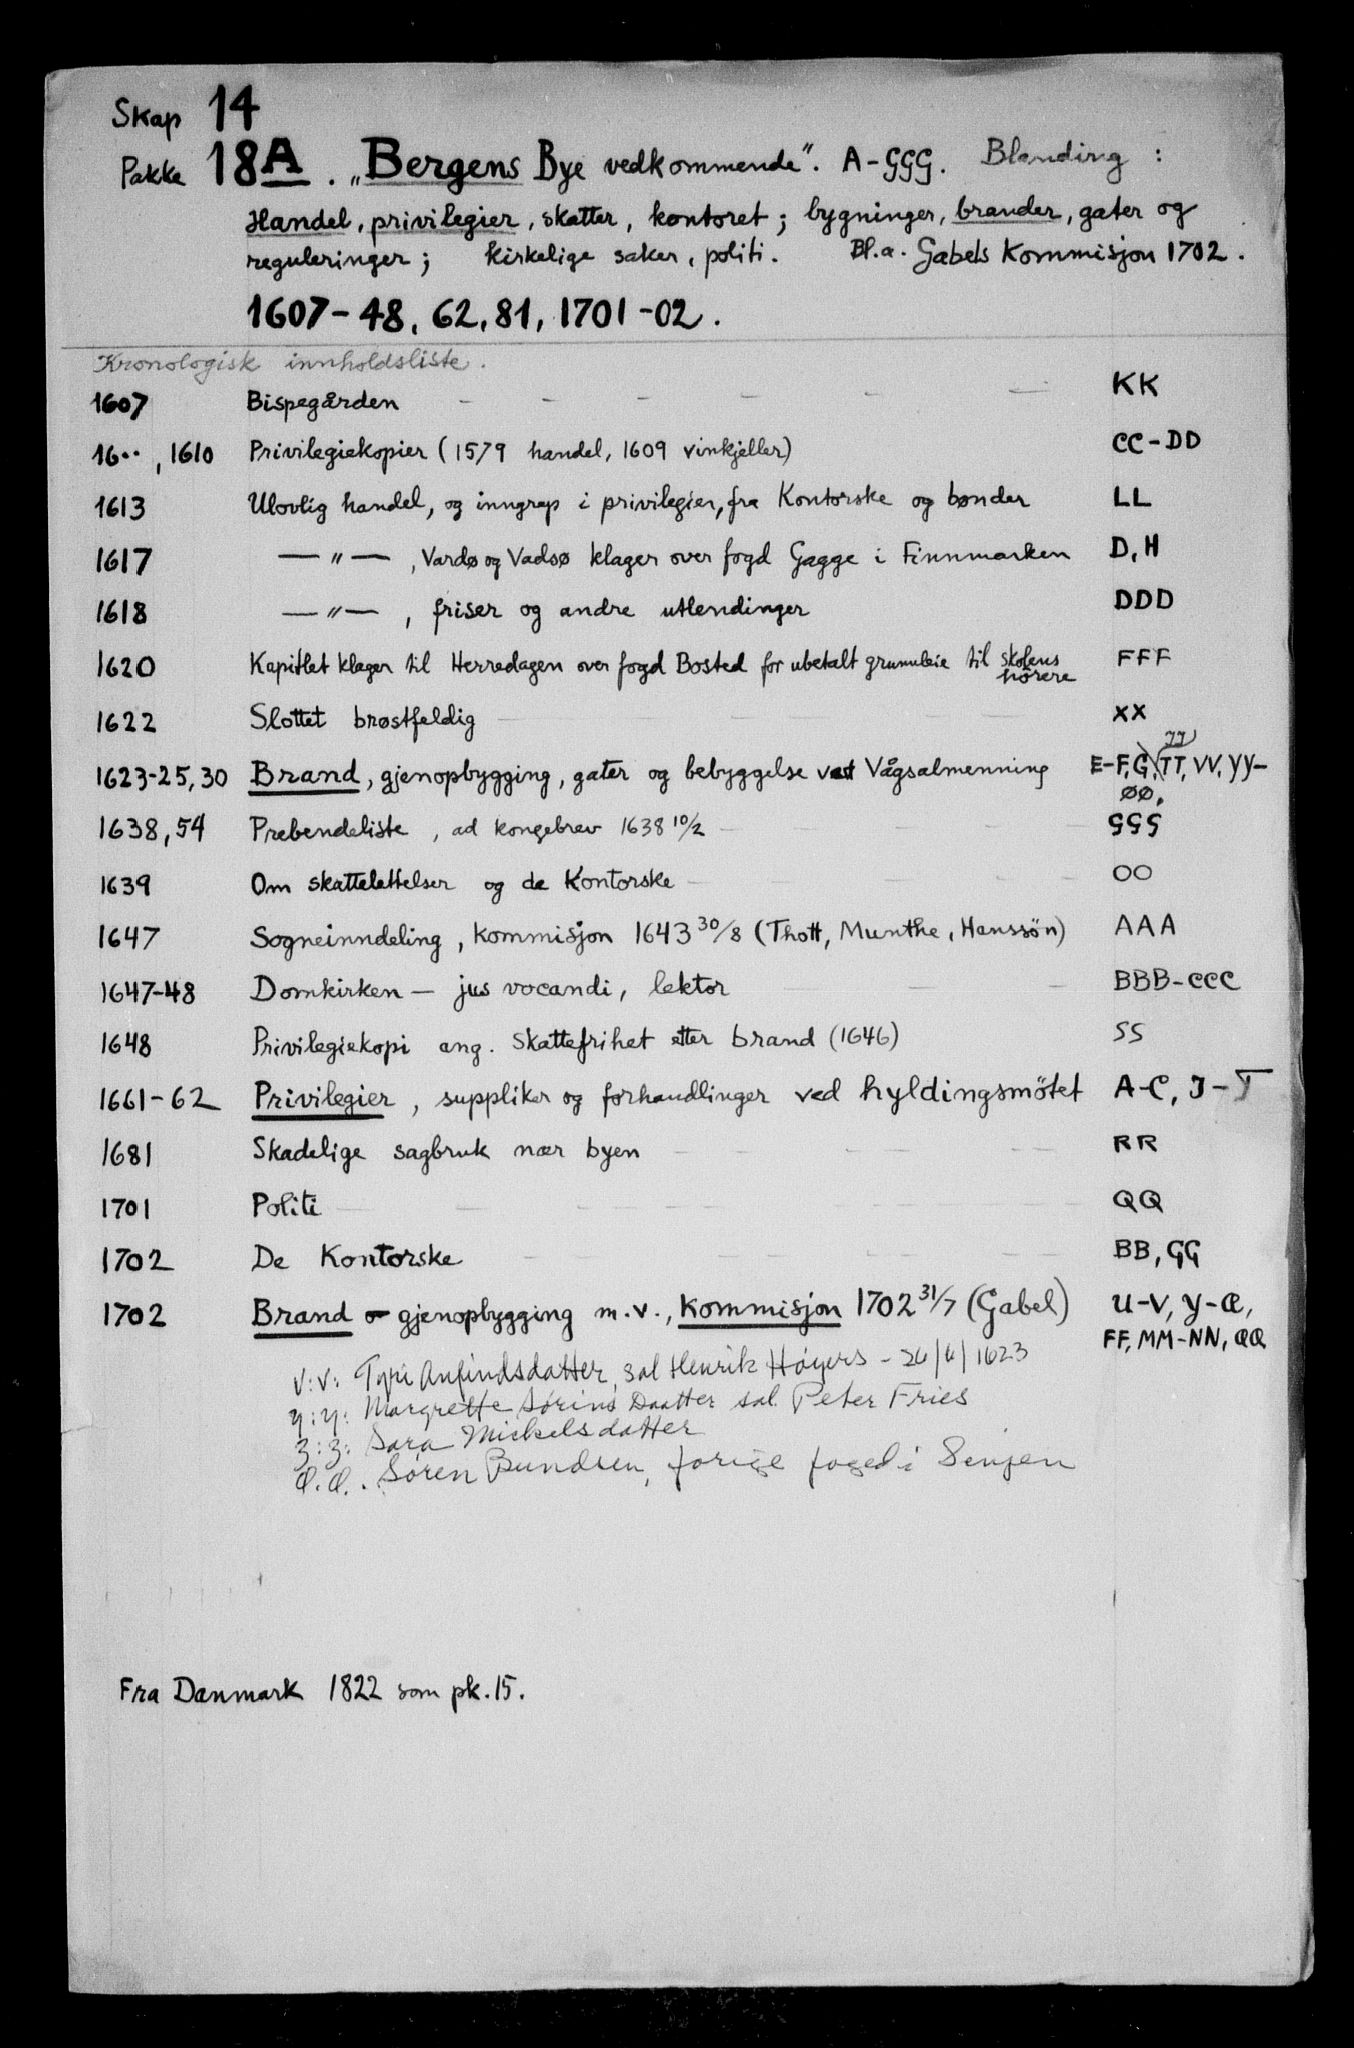 Skap 14
Pakke 18A. „Bergens Bye vedkommende". A-GGG. Blanding:
Handel, privilegier, skatter, kontoret; bygninger, brander, gater og
reguleringer; kirkelige saker, politi. Bl.a. Gabels Kommisjon 1702.
1607-48, 62, 81, 1701-02.
Kronologisk innholdsliste.
1607 Bispegården - - - - - - KK
16··, 1610 Privilegiekopier (1579 handel, 1609 vinkjeller) CC-DD
1613 Ulovlig handel, og inngrep i privilegier, fra Kontorske og bønder LL
1617 — " — , Vardø og Vadsø klager over fogd Gagge i Finnmarken D, H
1618 — " — , friser og andre utlendinger DDD
1620 Kapitlet klager til Herredagen over fogd Bosted for ubetalt grunnleie til skolens FFF
hørere
1622 Slottet brøstfeldig XX
JJ
1623-25, 30 Brand, gjenopbygging, gater og bebyggelse ved Vågsalmenning E-F, G, TT, VV, YY-
ØØ.
1638, 54 Prebendeliste, ad kongebrev 1638 10/2 GGG
1639 Om skattelettelser og de Kontorske OO
1647 Sogneinndeling, kommisjon 1643 30/8 (Thott, Munthe, Hanssøn) AAA
1647-48 Domkirken — jus vocandi, lektor BBB-CCC
1648 Privilegiekopi ang. skattefrihet etter brand (1646) SS
1661-62 Privilegier, suppliker og forhandlinger ved hyldingsmötet A-C, I-T
1681 Skadelige sagbruk nær byen RR
1701 Politi QQ
1702 De Kontorske BB, GG
1702 Brand gjenopbygging m.v., kommisjon 1702 31/7 (Gabel) U-V, Y-Æ,
FF, MM-NN, QQ
V:V: Anfindsdatter, sal Henrik Høyers - 26/6/1623
y:y: Margrette Sørins Daatter sal. Peter Fries
z:z: Sara Mickelsdatter
Æ.Æ. Søren Bundsen, forige foged i Senjen
Fra Danmark 1822 som pk. 15.